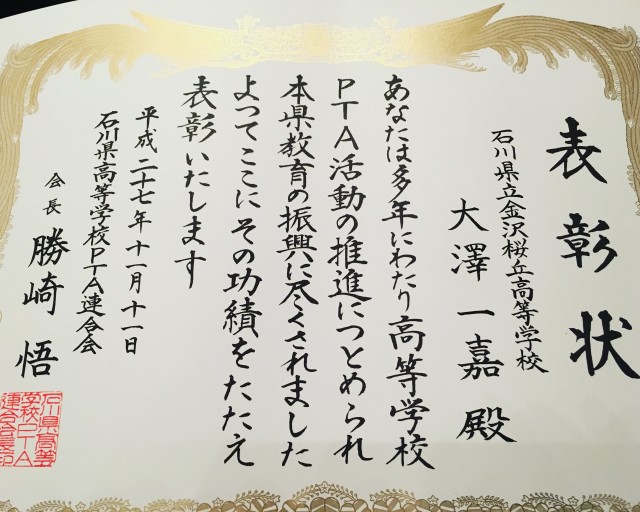 表彰状
石川県立金沢桜丘高等学校
大澤一嘉殿
あなたは多年にわたり高等学校
PTA活動の推進につとめられ
本県教育の振興に尽くされました
よってここにその功績をたたえ
表彰いたします
平成二十七年十一月十一日
石川県高等学校PTA連合会
会長 勝崎悟
石川県高等
学校PTA
連合会長印